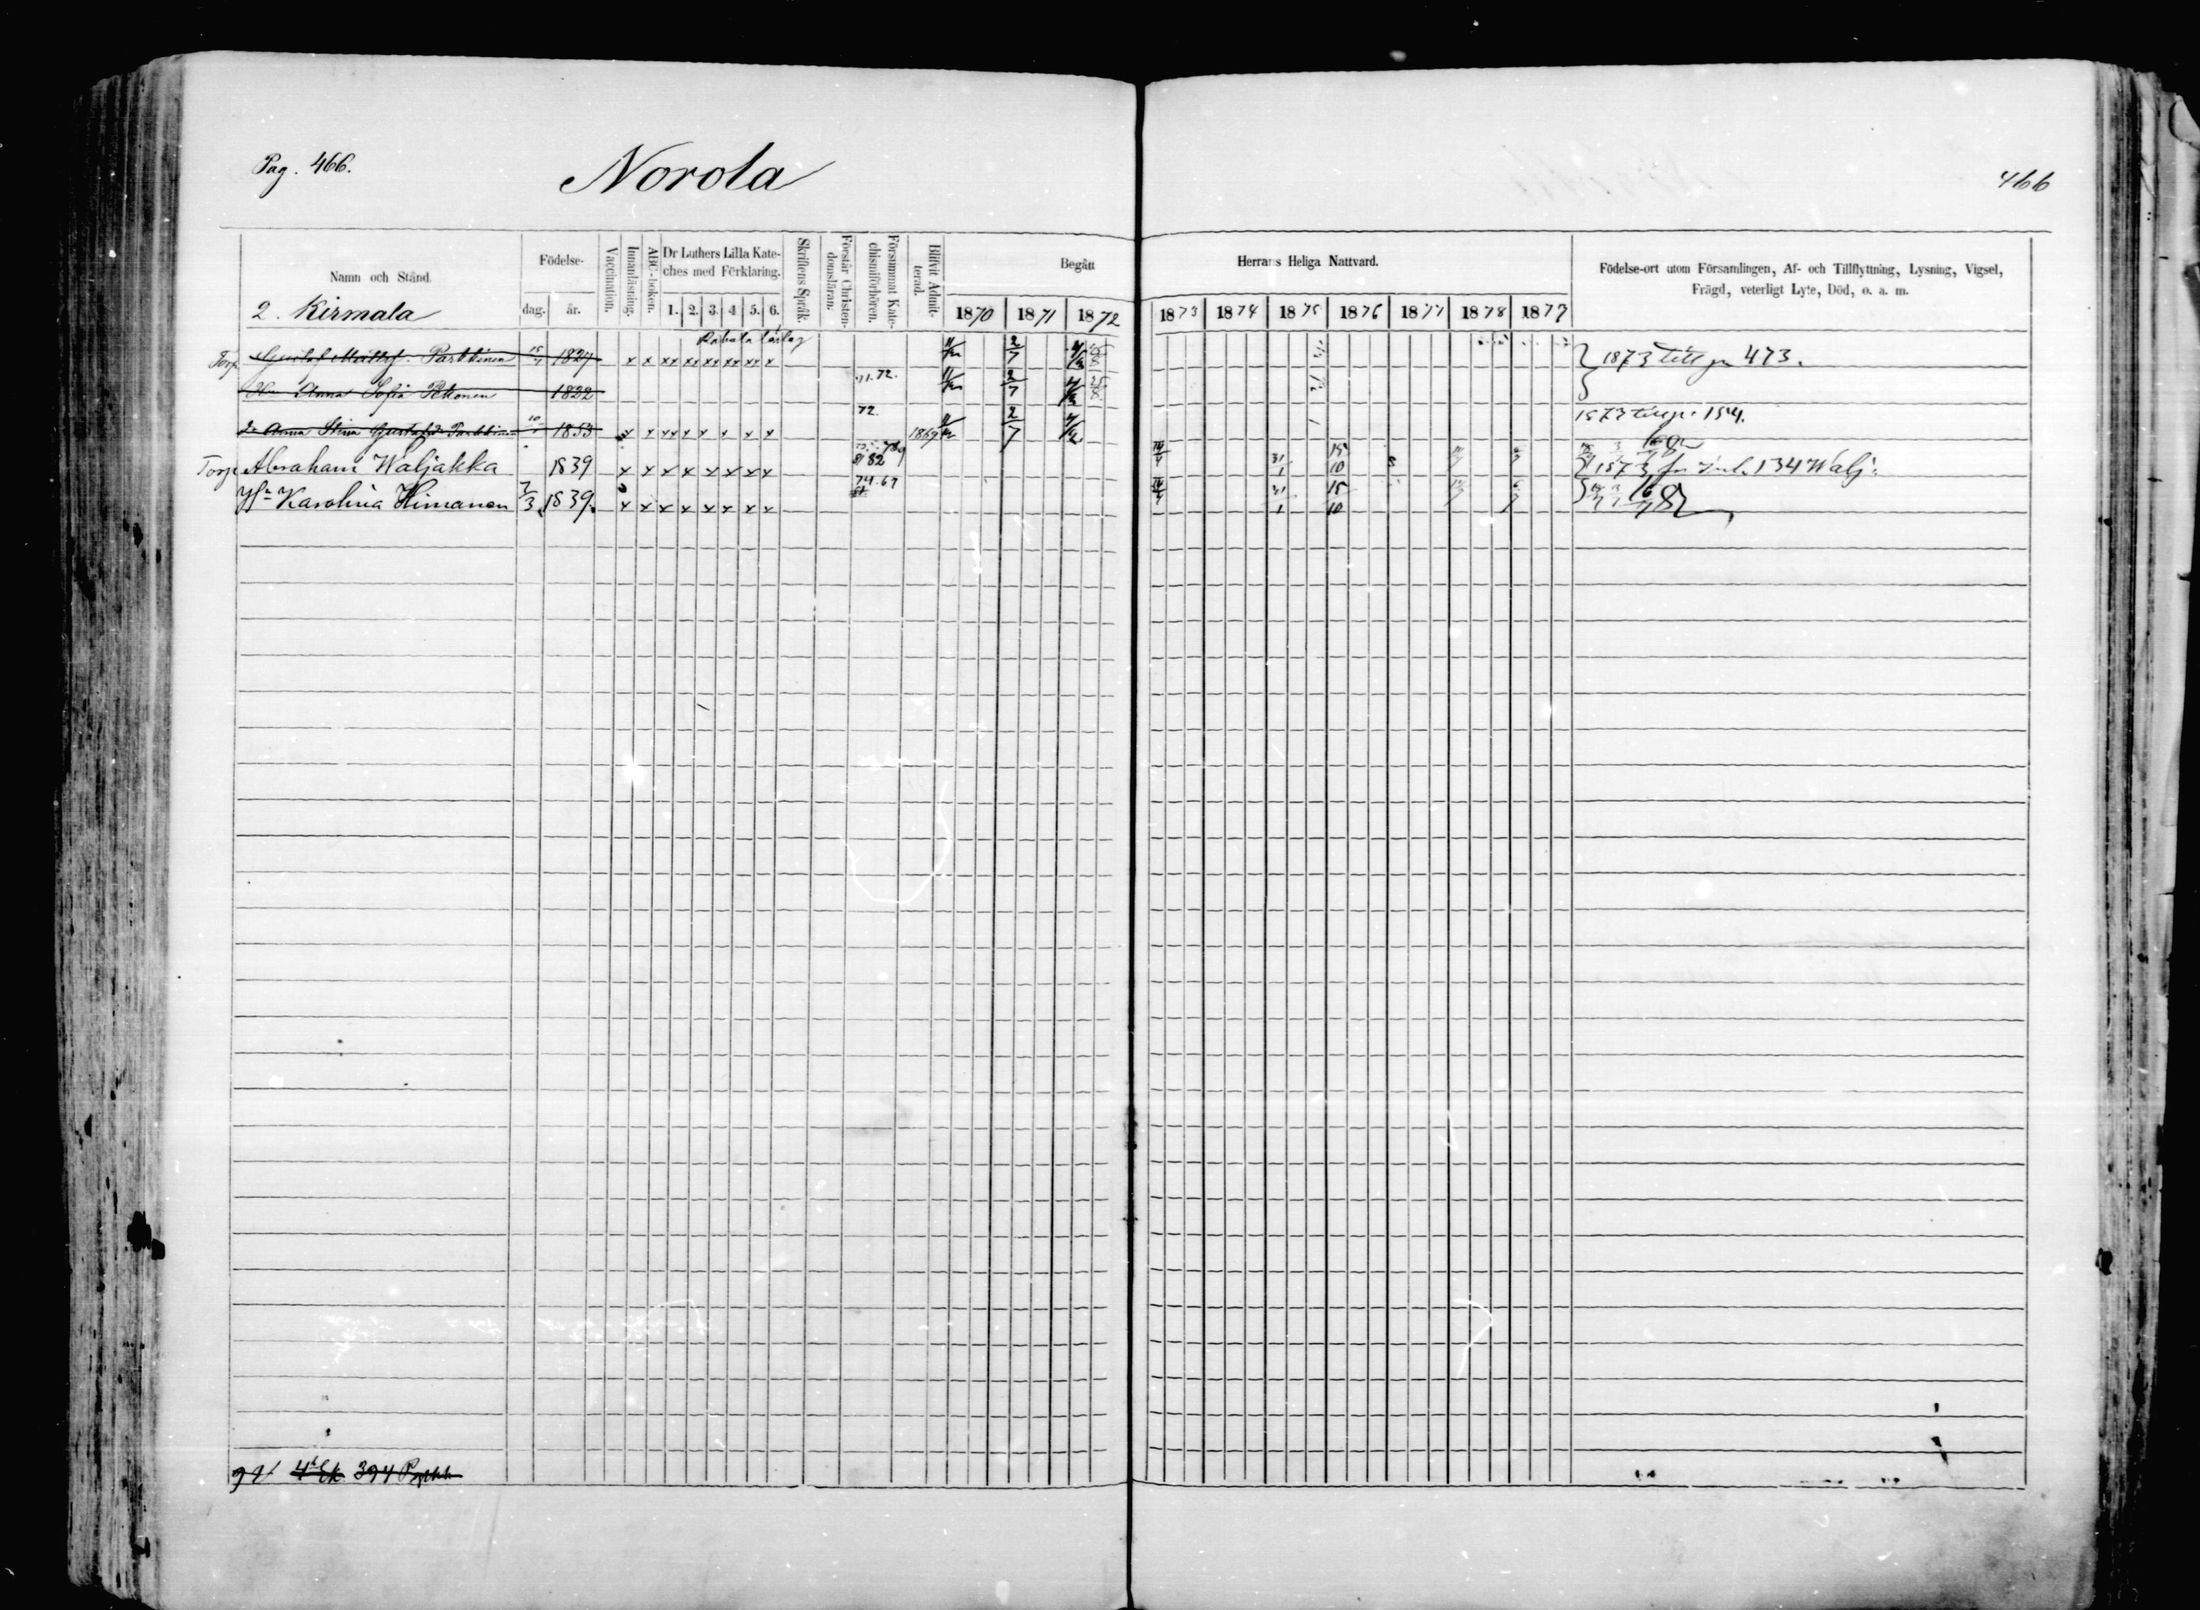 Pag. 466.
Norola
466
Namn och Stånd.
Födelse-
dag.
år.
Vaccination.
Innanläsning.
ABC-boken.
Dr Luthers Lilla Kate-
ches med Förklaring.
1. 2. 3. 4 5. 6.
Skriftens Språk.
Förstår Christen-
domsläran.
Försummat Kate-
chismiförhören.
Blifvit Admit-
terad.
Begått
Herrans Heliga Nattvard.
1870 1871 1872 1873 1874 1875 1876 1877 1878 1879
Födelse-ort utom Församlingen, Af- och Tillflyttning, Lysning, Vigsel,
Frägd, veterligt Lyte, Död, o. a. m.
2. Kirmala
Torp Gustaf Parkkinen 1827 x x xx xx xx xx xx x 2/7 1873 till pag 473.
Anna Sofia Pekonen 1822 71.72. 2/7
Anna Stina Gustafsd. Parkkinen 1853 x x xx x x x x x 72. 1869 2/7
Torp Abraham Waljakka 1839 x x x x x x x x 82 31/1 15/10 1873 fr 134 Walj.
Hu Karolina Himanen 7/3 1839. x x x x x x x x 74 31/1 15/10
394